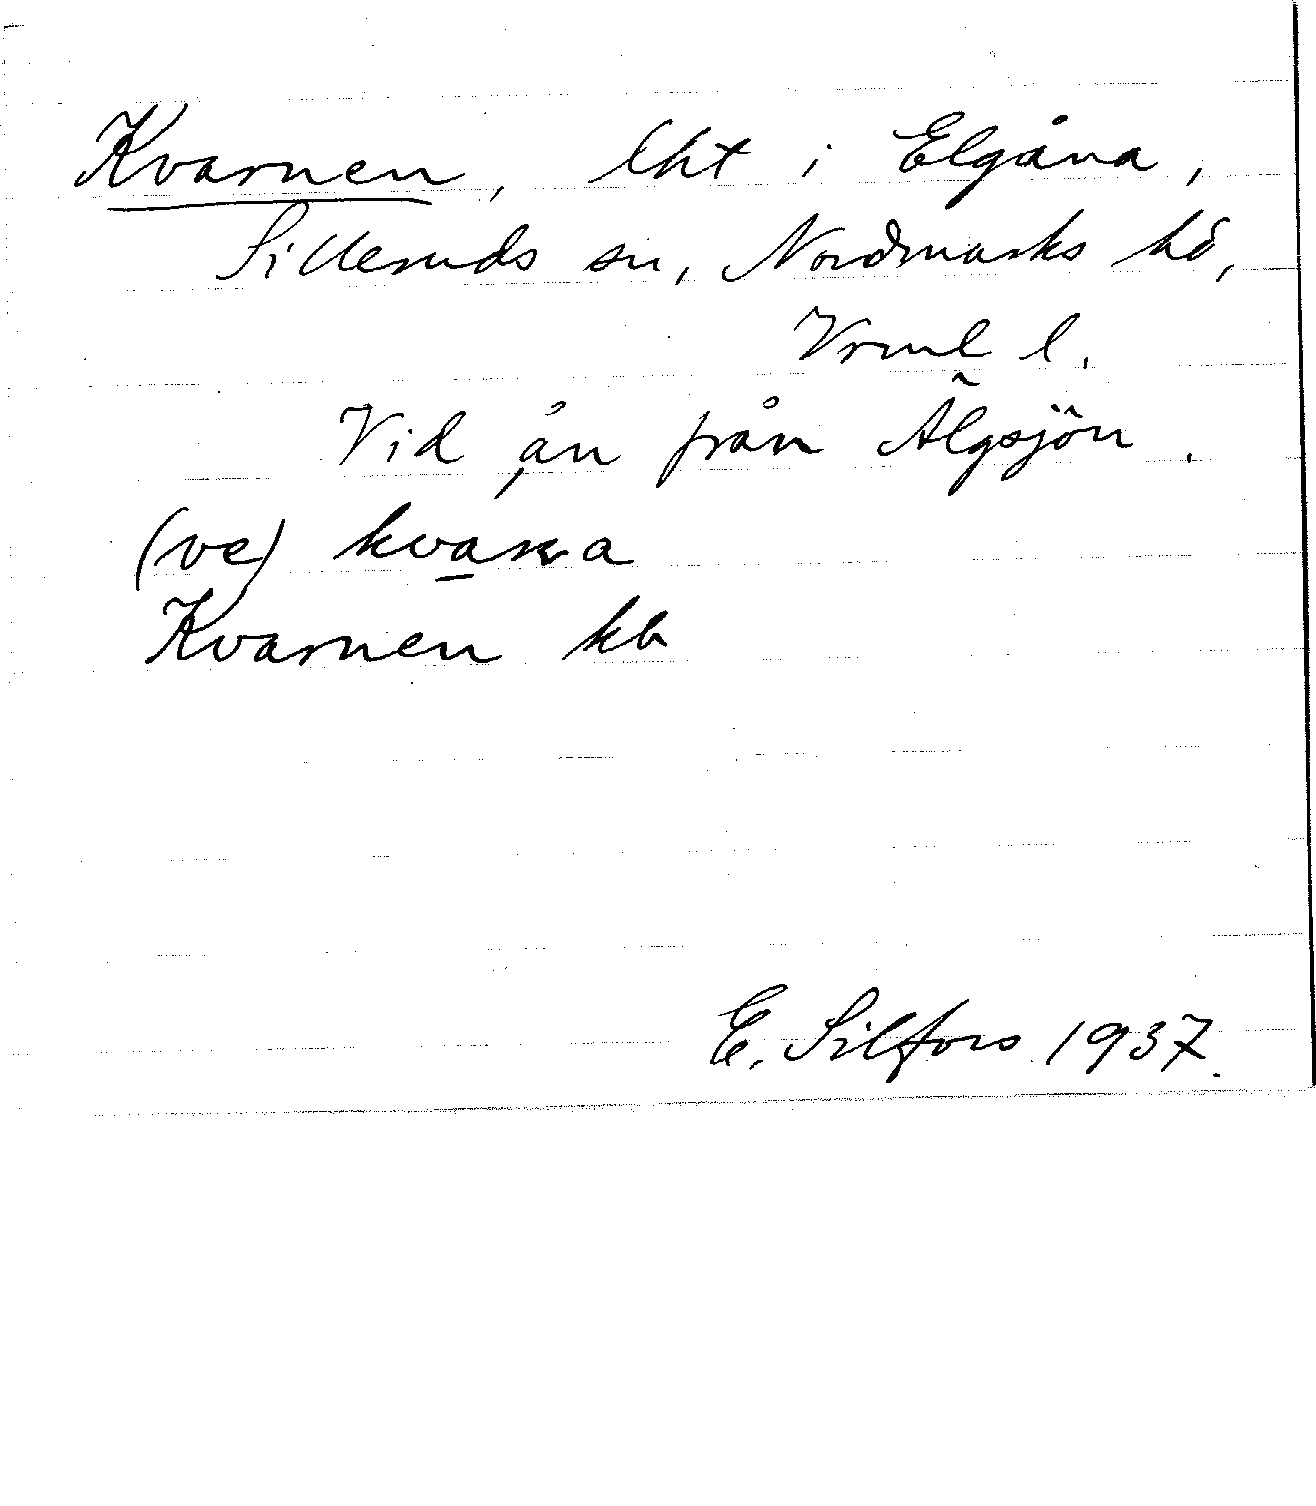 Kvarnen, lht i Elgåna,
Silleruds sn, Nordmarks hd,
Vrml l.
Vid ån från Älgsjön.
(ve) kvaṉa
Kvarnen kb
E. Silfors 1937.